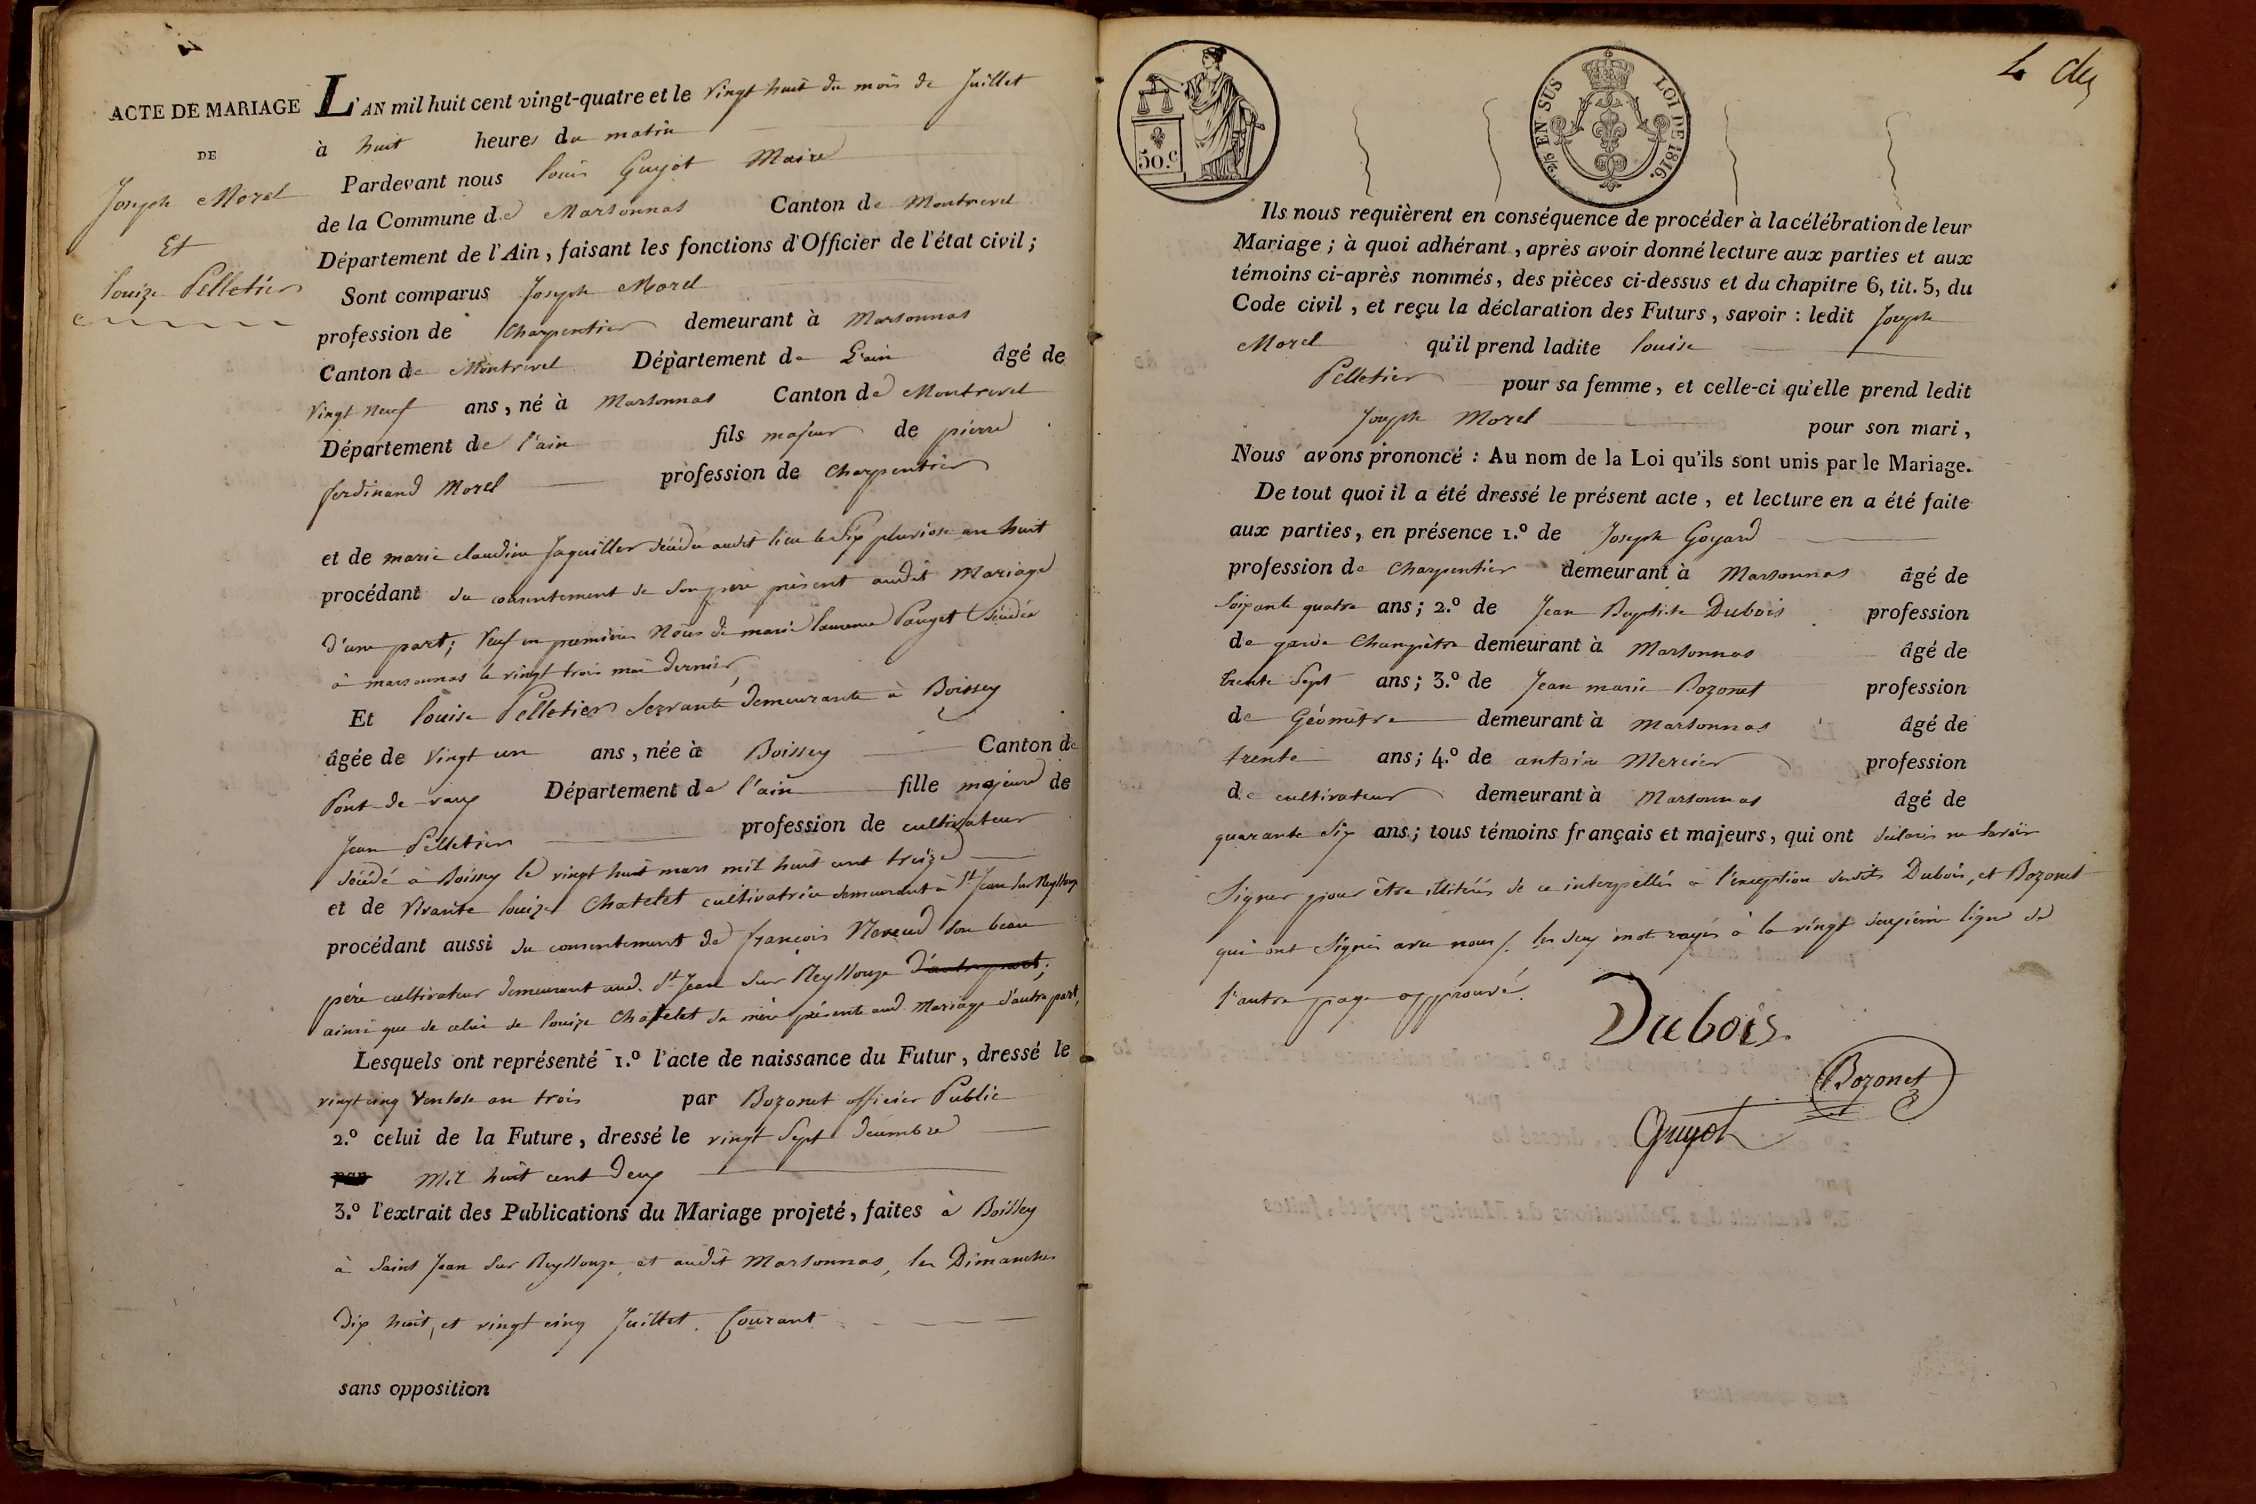 ACTE DE MARIAGE
DE
Joseph Morel
Et
Louize Pelletier
L'AN mil huit cent vingt-quatre et le vingt huit du mois de Juillet
à huit heures du matin
Pardevant nous Louis Guyot Maire
de la Commune de Marsonnas Canton de Montrevel
Département de l'Ain, faisant les fonctions d'Officier de l'état civil;
Sont comparus Joseph Morel
profession de Charpentier demeurant à Marsonnas
Canton de Montrevel Département de L'ain âgé de
vingt neuf ans, né à Marsonnas Canton de Montrevel
Département de l'ain fils majeur de pierre
ferdinand Morel profession de charpentier
et de marie claudine Jaquiller décédée audit lieu le Six pluviose an huit
procédant du consentement de Son père présent audit Mariage
d'une part; Veuf en premières Nôces de marie laurence Pauget décédée
à marsonnas le vingt trois mai dernier,
Et Louise Pelletier Servante demeurante à Boissey
âgée de vingt un ans, née à Boissey Canton de
Pont-de-vaux Département de l'ain fille majeure de
Jean Pelletier profession de cultivateur
décédé à Boissey le vingt huit mars mil huit cent treize
et de vivante louize Chatelet cultivatrice demeurant à St Jean Sur Reyssouze
procédant aussi du consentement de françois Neveud Son beau
père cultivateur demeurant aud. St Jean Sur Reyssouze d'autre part;
ainsi que de celui de louize Chatelet Sa mère présente aud. Mariage d'autre part,
Lesquels ont représenté 1.º l'acte de naissance du Futur, dressé le
vingt cinq Ventose an trois par Bozonet officier Public
2.º celui de la Future, dressé le vingt Sept décembre
par Mil huit cent deux
3.º l'extrait des Publications du Mariage projeté, faites à Boissey
à Saint Jean Sur Reyssouze, et audit Marsonnas, les Dimanches
dix huit, et vingt cinq Juillet Courant
sans opposition
50.c
2/5 EN SUS
LOI DE 1816.
Ils nous requièrent en conséquence de procéder à la célébration de leur
Mariage; à quoi adhérant, après avoir donné lecture aux parties et aux
témoins ci-après nommés, des pièces ci-dessus et du chapitre 6, tit. 5, du
Code civil, et reçu la déclaration des Futurs, savoir: ledit Joseph
Morel qu'il prend ladite Louise
Pelletier pour sa femme, et celle-ci qu'elle prend ledit
Joseph Morel pour son mari,
Nous avons prononcé: Au nom de la Loi qu'ils sont unis par le Mariage.
De tout quoi il a été dressé le présent acte, et lecture en a été faite
aux parties, en présence 1.º de Joseph Goyard
profession de Charpentier demeurant à Marsonnas âgé de
Soixante quatre ans; 2.º de Jean Baptiste Dubois profession
de garde Champêtre demeurant à Marsonnas âgé de
trente Sept ans; 3.º de Jean marie Bozonet profession
de Géomètre demeurant à Marsonnas âgé de
trente ans; 4.º de antoine Mercier profession
de cultivateur demeurant à Marsonnas âgé de
quarante Six ans; tous témoins français et majeurs, qui ont déclarés ne Savoir
Signer pour être illitérés de ce interpellés à l'exception desdits Dubois, et Bozonet
qui ont Signés avec nous /. les deux mot rayés à la vingt deuxième ligne de
l'autre page approuvé.
Dubois
Bozonet
Guyot